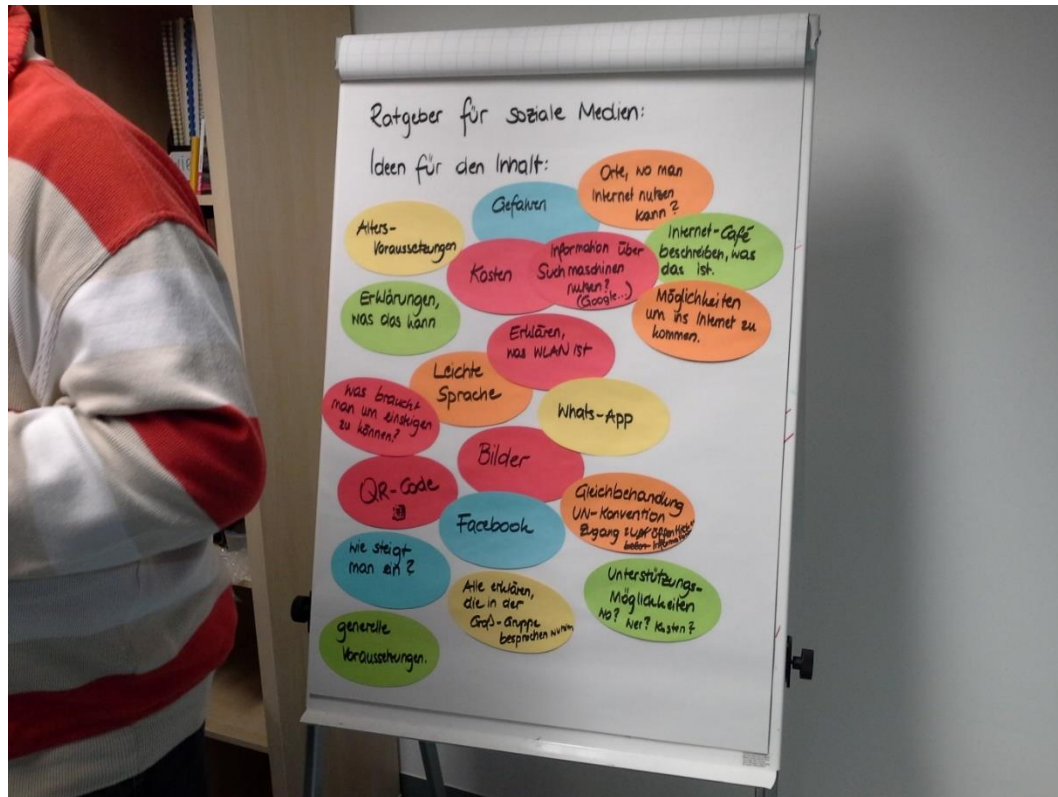 Ratgeber für soziale Medien:
Ideen für den Inhalt:
Orte, wo man
Internet nutzen
kann?
Gefahren
Alters-
Voraussetzungen
Internet-Café
beschreiben, was
das ist.
Kosten
Information über
Suchmaschinen
nutzen?
(Google...)
Erklärungen,
was das kann
Möglichkeiten
um ins Internet zu
kommen.
Erklären,
was WLAN ist
Leichte
Sprache
was braucht
man um einsteigen
zu können?
Whats-App
Bilder
QR-Code
Gleichbehandlung
UN-Konvention
Zugang
Facebook
wie steigt
man ein?
Alle erklären,
die in der
Groß-Gruppe
besprochen wurden
Unterstützungs-
Möglichkeiten
Wo? Wer? Kosten?
generelle
Voraussetzungen.